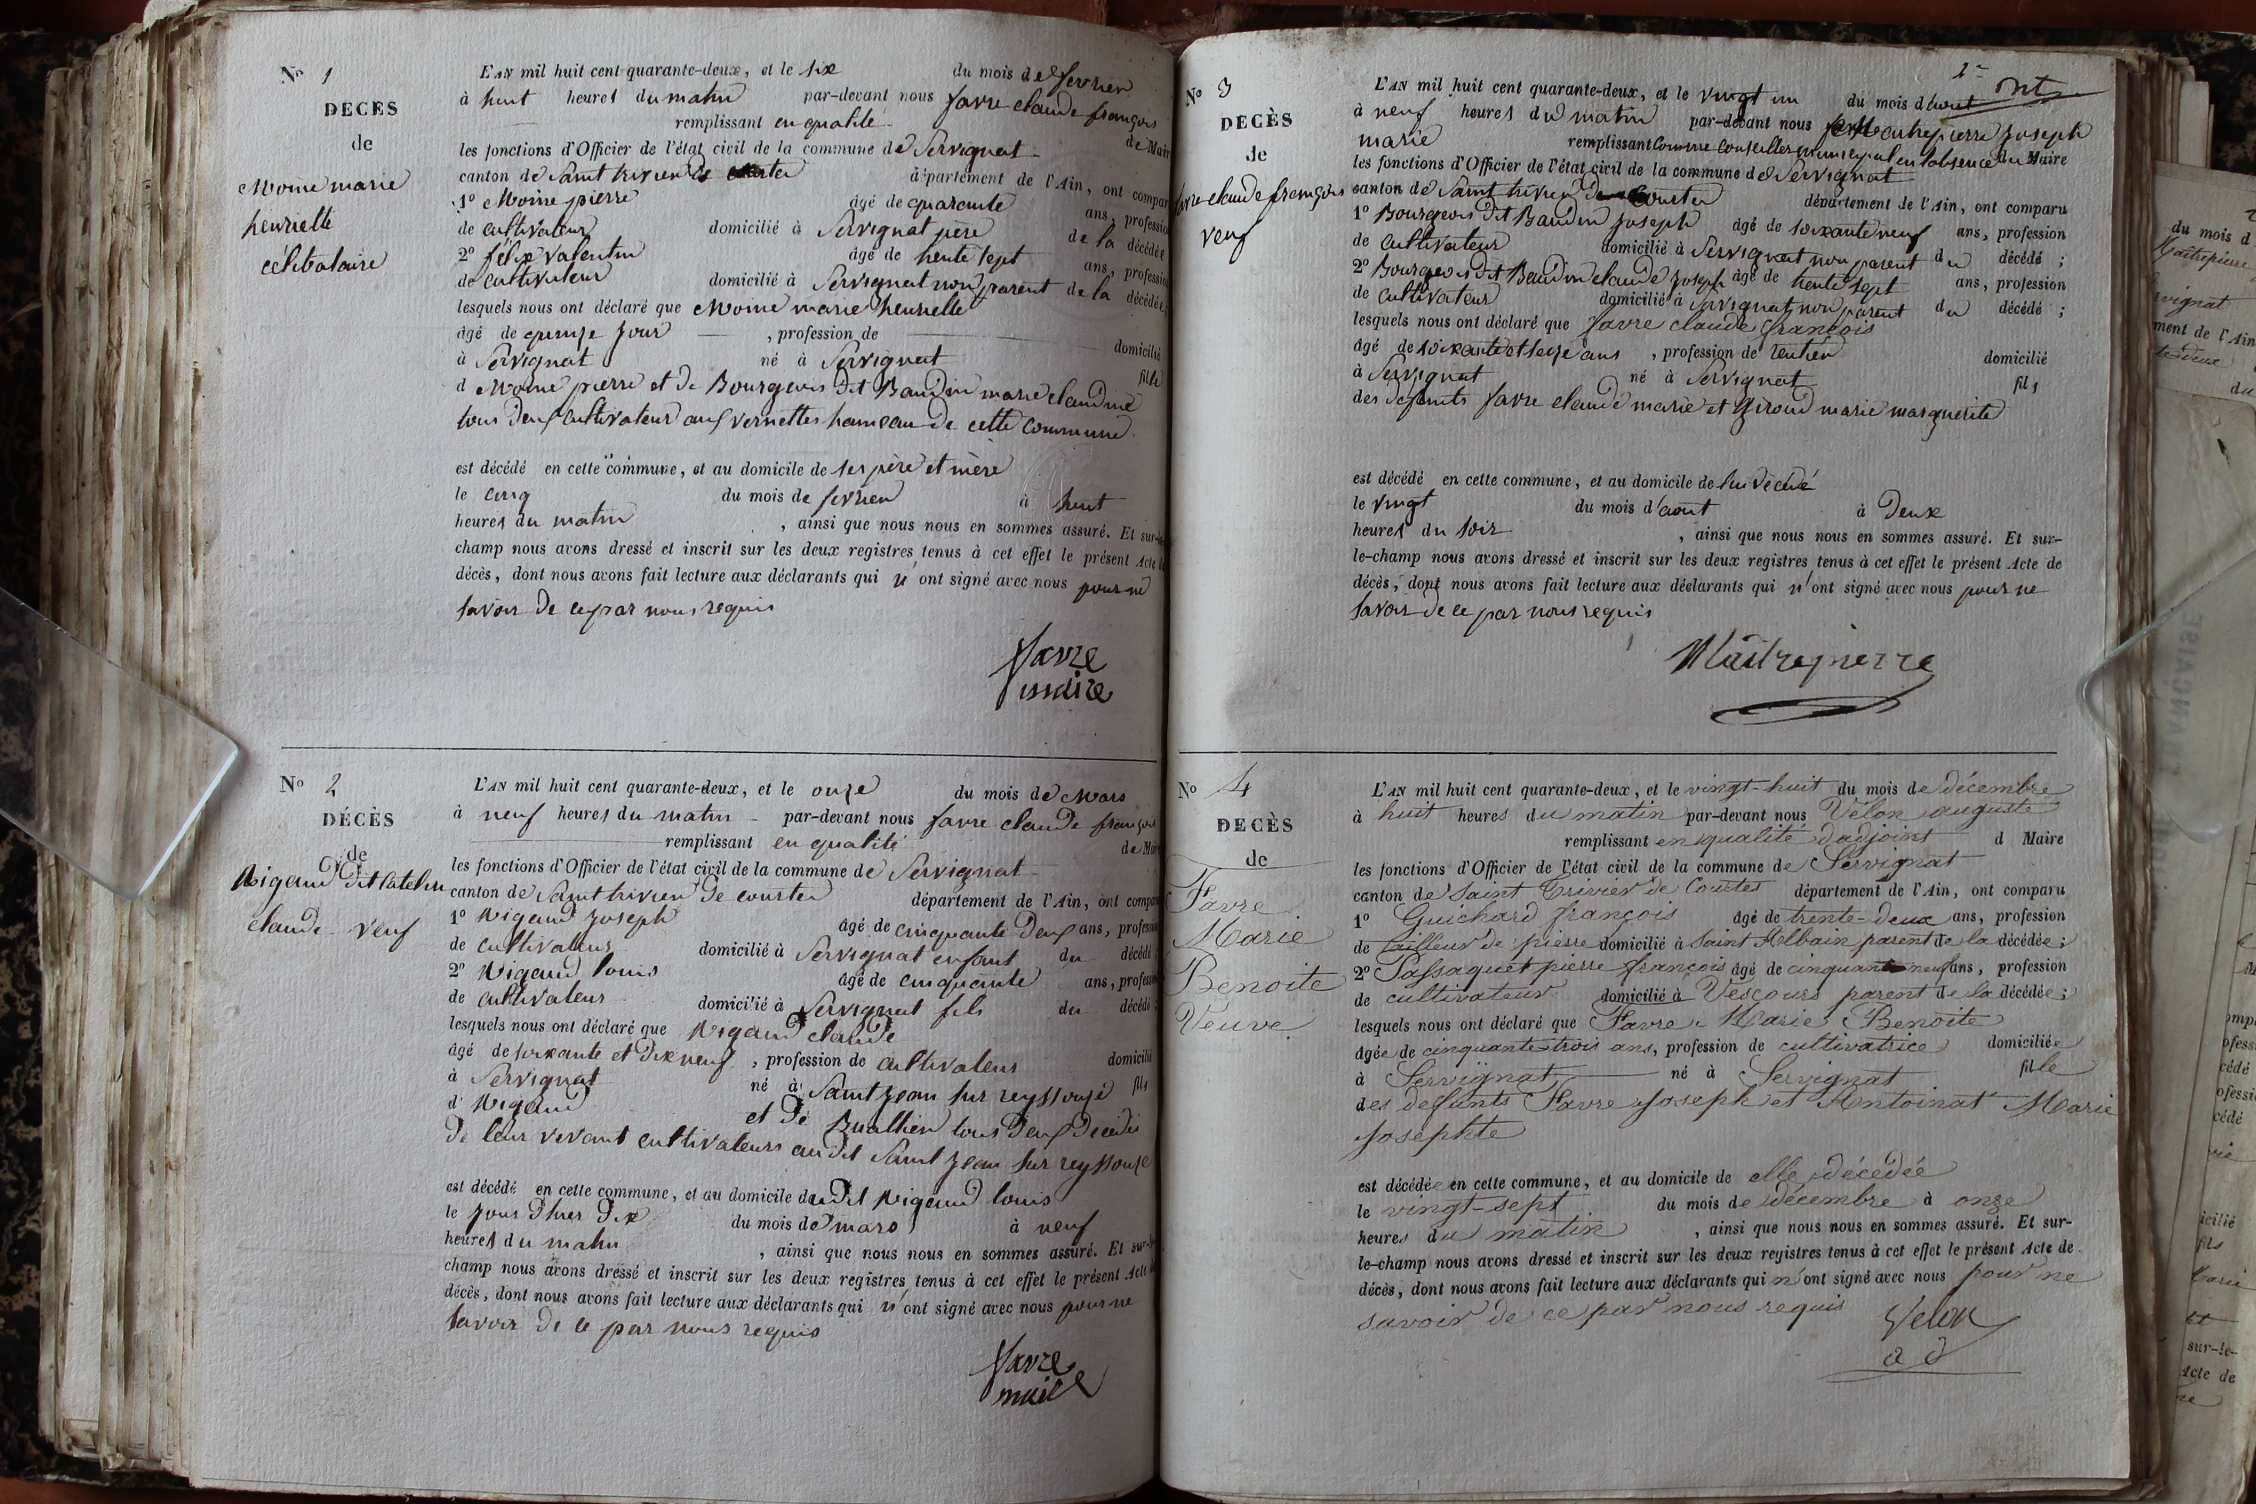 No 1
DECES
de
Moine marie
henriette
célibataire
L'AN mil huit cent quarante-deux, et le six du mois de fevrier
à huit heures du matin par-devant nous favre claude françois
remplissant en qualité de Maire
les fonctions d'Officier de l'état civil de la commune de Servignat
canton de Saint trivier de département de l'Ain, ont compar
1º Moine pierre âgé de quarante ans, profession
de cultivateur domicilié à Servignat père de la décédée
2º félix valentin âgé de trente sept ans, profession
de cultivateur domicilié à Servignat non parent de la décédée;
lesquels nous ont déclaré que Moine marie henriette
âgé de quinze jour , profession de domicilié
à Servignat né à Servignat fille
d Moine pierre et de Bourgeois dit Baudin marie claudine
tous deux cultivateur aux vernettes hameau de cette commune
est décédé en cette commune, et au domicile de ses père et mère
le cinq du mois de fevrier à huit
heures du matin , ainsi que nous nous en sommes assuré. Et sur-le-
champ nous avons dressé et inscrit sur les deux registres tenus à cet effet le présent Acte
décès, dont nous avons fait lecture aux déclarants qui n'ont signé avec nous pour ne
savoir de ce par nous requis
favre
maire
No 2
DÉCÈS
de
Rigaud dit catelin
claude veuf
L'AN mil huit cent quarante-deux, et le onze du mois de Mars
à neuf heures du matin par-devant nous favre claude françois
remplissant en qualité de Maire
les fonctions d'Officier de l'état civil de la commune de Servignat
canton de Saint trivier de courtes département de l'Ain, ont compar
1º Rigaud joseph âgé de cinquante deux ans, profession
de cultivateur domicilié à Servignat enfant du décédé
2º Rigaud louis âgé de cinquante ans, profession
de cultivateur domicilié à Servignat fils du décédé;
lesquels nous ont déclaré que Rigaud claude
âgé de soixante et dix neuf , profession de cultivateur domicilié
à Servignat né à Saint jean sur reyssouze fils
d' Rigaud et de Buathier tous deux décédés
de leur vivant cultivateurs audit Saint jean sur reyssouze
est décédé en cette commune, et au domicile dudit Rigaud louis
le jour d'hier dix du mois de mars à neuf
heures du matin , ainsi que nous nous en sommes assuré. Et sur-le-
champ nous avons dressé et inscrit sur les deux registres tenus à cet effet le présent Acte
décès, dont nous avons fait lecture aux déclarants qui n'ont signé avec nous pour ne
savoir de ce par nous requis
favre
maire
No 3
DECÈS
de
favre claude françois
veuf
L'AN mil huit cent quarante-deux, et le vingt un du mois d'aout
à neuf heures du matin par-devant nous Maitrepierre joseph
marie remplissant comme conseiller municipal en l'absence du Maire
les fonctions d'Officier de l'état civil de la commune de Servignat
canton de Saint trivier de courtes département de l'Ain, ont comparu
1º Bourgeois dit Baudin joseph âgé de soixante neuf ans, profession
de cultivateur domicilié à Servignat non parent du décédé;
2º Bourgeois dit Baudin claude joseph âgé de trente sept ans, profession
de cultivateur domicilié à Servignat non parent du décédé;
lesquels nous ont déclaré que favre claude françois
âgé de soixante et seize ans , profession de rentier domicilié
à Servignat né à Servignat fils
des défunts favre claude marie et Giroud marie marguerite
est décédé en cette commune, et au domicile de lui décédé
le vingt du mois d'aout à deux
heures du soir , ainsi que nous nous en sommes assuré. Et sur-
le-champ nous avons dressé et inscrit sur les deux registres tenus à cet effet le présent Acte de
décès, dont nous avons fait lecture aux déclarants qui n'ont signé avec nous pour ne
savoir de ce par nous requis
Maitrepierre
No 4
DECÈS
de
Favre
Marie
Benoite
Veuve
L'AN mil huit cent quarante-deux, et le vingt-huit du mois de décembre
à huit heures du matin par-devant nous Vélon auguste
remplissant en qualité d'adjoint d Maire
les fonctions d'Officier de l'état civil de la commune de Servignat
canton de Saint Trivier de Courtes département de l'Ain, ont comparu
1º Guichard françois âgé de trente-deux ans, profession
de tailleur de pierre domicilié à Saint Albain parent de la décédée;
2º Passaquet pierre françois âgé de cinquante neuf ans, profession
de cultivateur domicilié à Vescours parent de la décédée;
lesquels nous ont déclaré que Favre Marie Benoite
âgée de cinquante-trois ans, profession de cultivatrice domiciliée
à Servignat né à Servignat fille
des defunts Favre Joseph et Antoinat Marie
Josephte
est décédée en cette commune, et au domicile de elle décédée
le vingt-sept du mois de décembre à onze
heures du matin , ainsi que nous nous en sommes assuré. Et sur-
le-champ nous avons dressé et inscrit sur les deux registres tenus à cet effet le présent Acte de
décès, dont nous avons fait lecture aux déclarants qui n'ont signé avec nous pour ne
savoir de ce par nous requis
Velon
ad